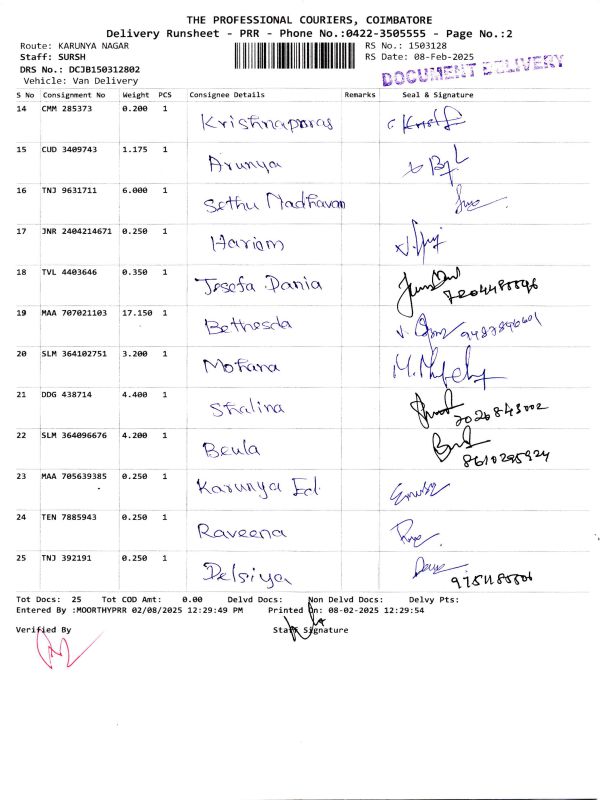 THE PROFESSIONAL COURIERS, COIMBATORE
Delivery Runsheet - PRR - Phone No.:0422-3505555 - Page No.:2
Route: KARUNYA NAGAR RS No.: 1503128
Staff: SURSH RS Date: 08-Feb-2025
DRS No.: DCJB150312802
Vehicle: Van Delivery
DOCUMENT DELIVERY
S No Consignment No Weight PCS Consignee Details Remarks Seal & Signature
14 CMM 285373 0.200 1 Krishnaprras
15 CUD 3409743 1.175 1 Arunya
16 TNJ 9631711 6.000 1 Sethu Madhavan
17 JNR 2404214671 0.250 1 Hariom
18 TVL 4403646 0.350 1 Josefa Dania
19 MAA 707021103 17.150 1 Bethesda
20 SLM 364102751 3.200 1 Mohana
21 DDG 438714 4.400 1 Shalina
22 SLM 364096676 4.200 1 Beula 8610295924
23 MAA 705639385 0.250 1 Karunya Ed
24 TEN 7885943 0.250 1 Raveena
25 TNJ 392191 0.250 1 Delsiya
Tot Docs: 25 Tot COD Amt: 0.00 Delvd Docs: Non Delvd Docs: Delvy Pts:
Entered By :MOORTHYPRR 02/08/2025 12:29:49 PM Printed On: 08-02-2025 12:29:54
Verified By Staff Signature